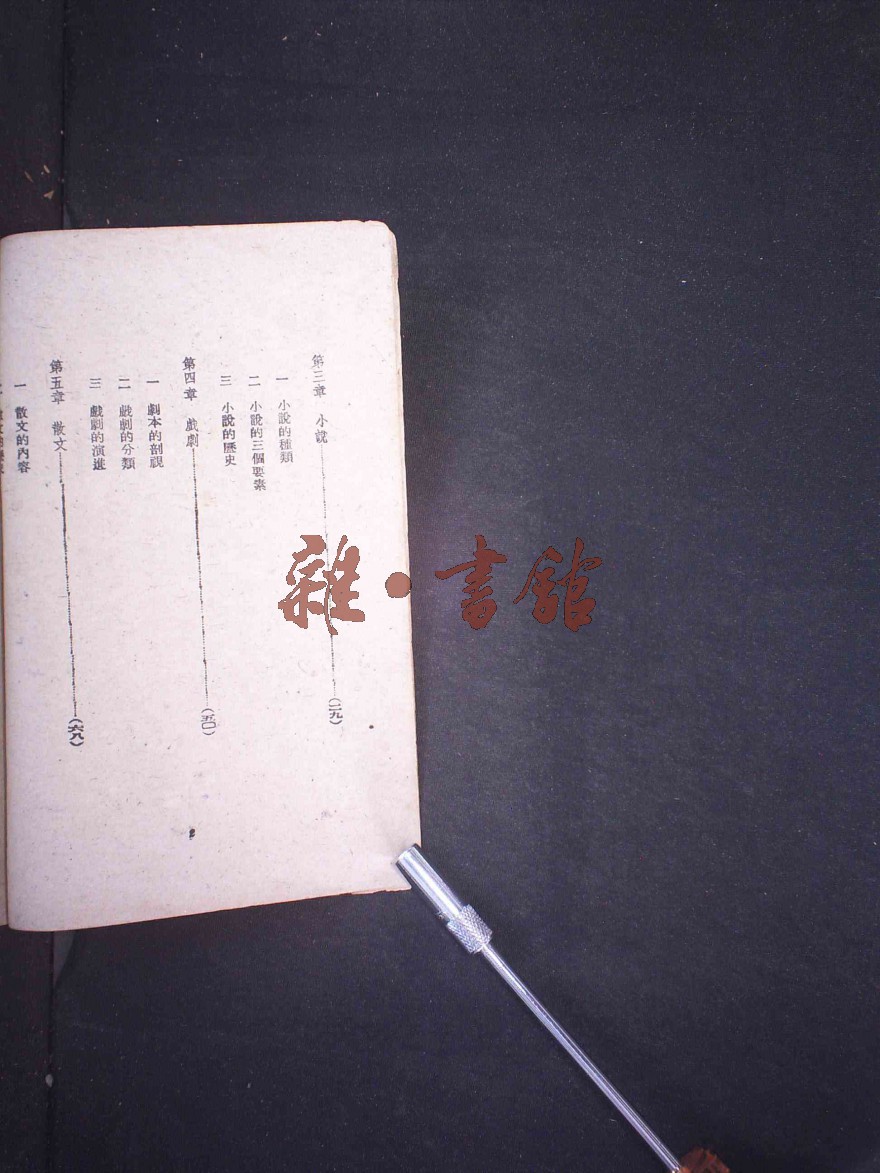 第三章 小說(二九)
一 小說的種類
二 小說的三個要素
三 小說的歷史
第四章 戲劇(五〇)
一 劇本的剖視
二 戲劇的分類
三 戲劇的演進
第五章 散文(六八)
一 散文的內容
雜·書館